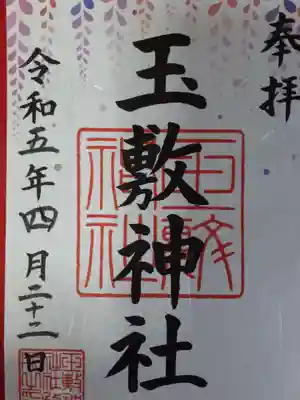 奉拝
玉敷神社
令和五年四月二十二日
玉敷神社